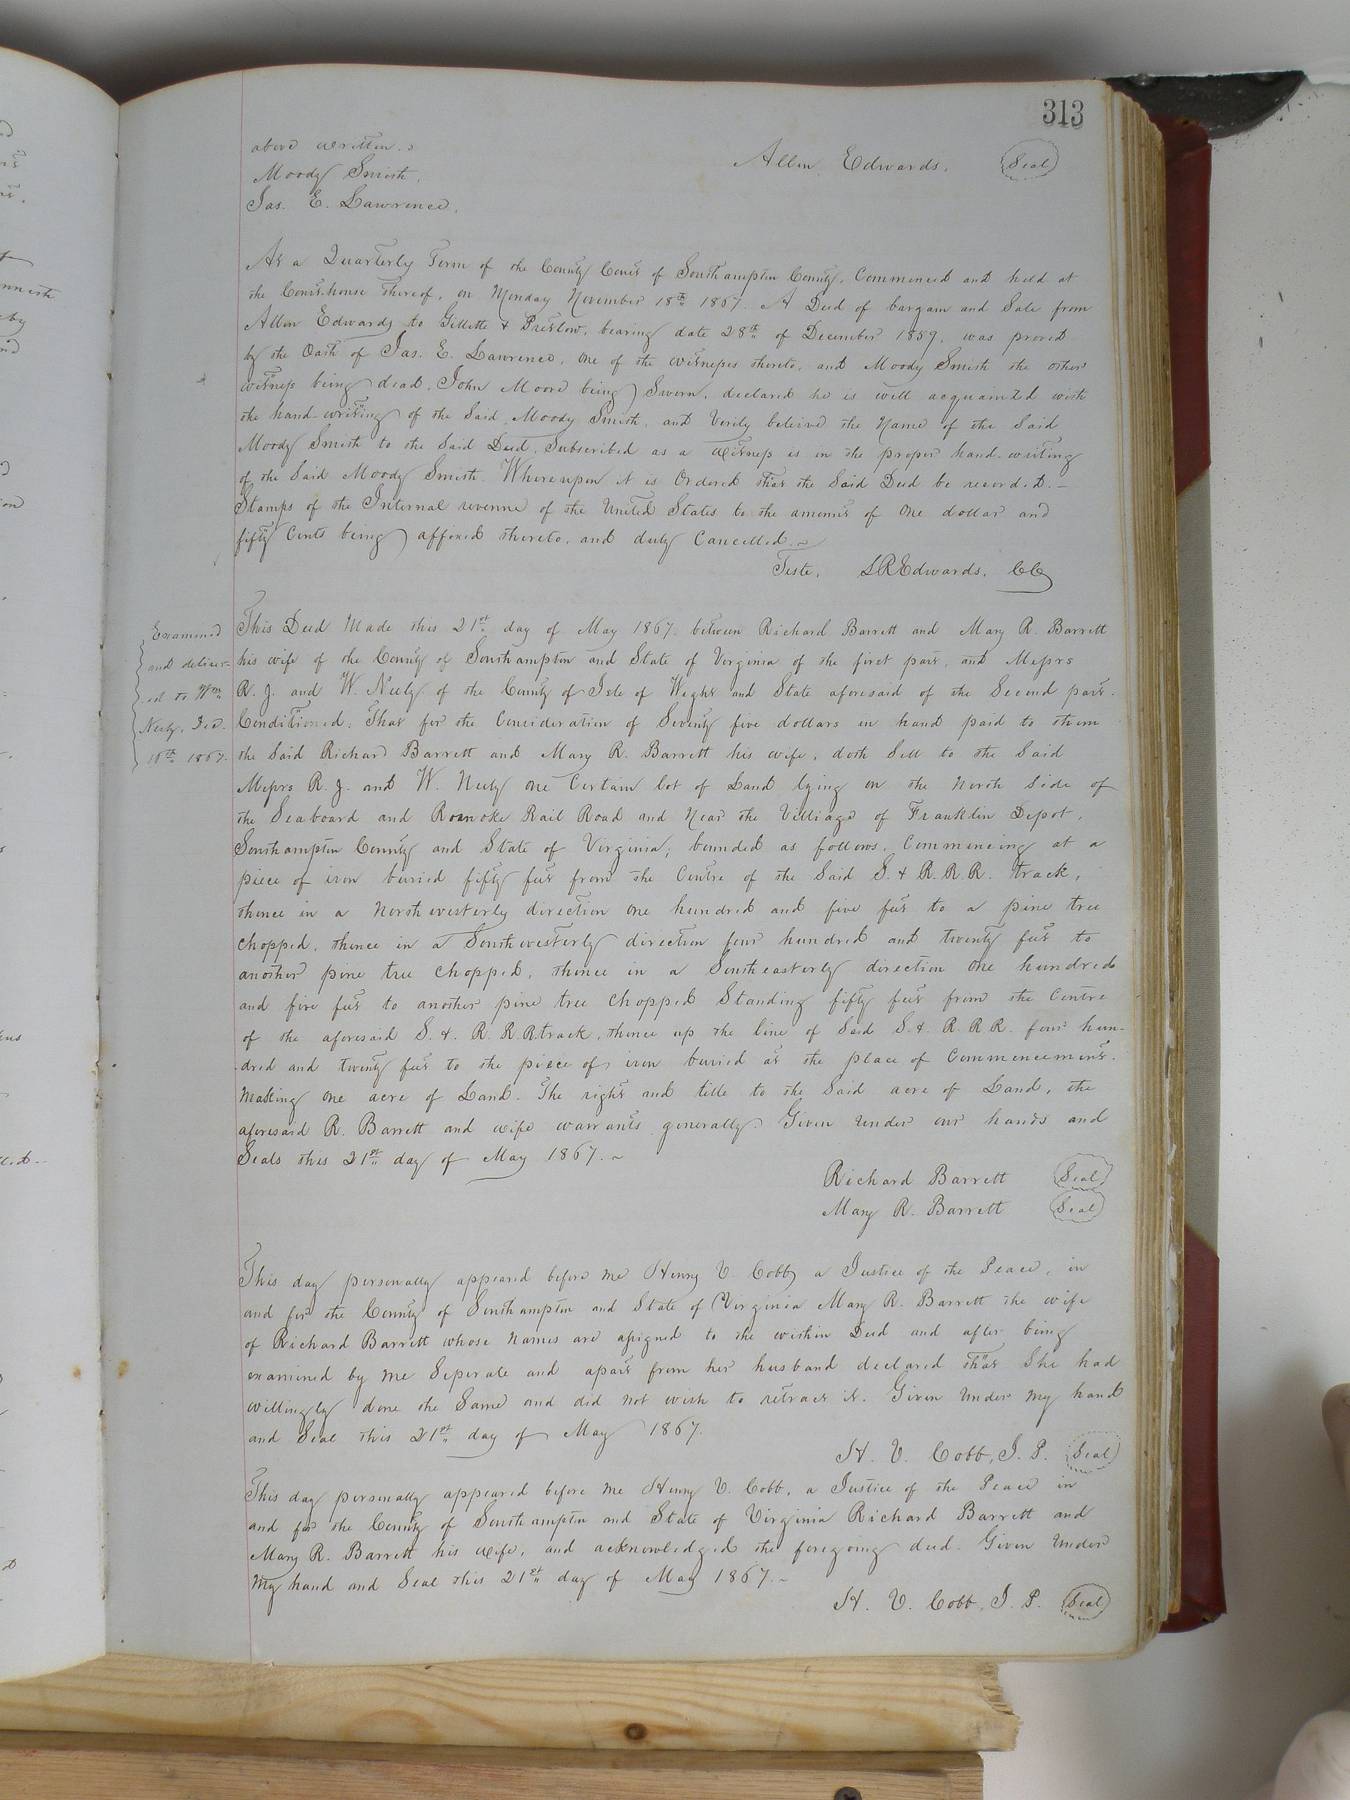 313
above written.
Allen Edwards. Seal
Moody Smith.
Jas. E. Lawrence.
At a Quarterly Term of the County Court of Southampton County, Commenced and held at
the Courthouse thereof, on Monday November 18th 1867. A Deed of bargain and Sale from
Allen Edwards to Gillette & Pretlow, bearing date 28th of December 1859, was proved
by the Oath of Jas. E. Lawrence, one of the witnesses thereto, and Moody Smith the other
witness being dead, John Moore being Sworn, declared he is well acquainted with
the hand-writing of the Said Moody Smith, and Verily believed the Name of the Said
Moody Smith to the Said Deed, Subscribed as a witness is in the proper hand-writing
of the Said Moody Smith. Whereupon it is Ordered that the Said Deed be recorded.—
Stamps of the Internal revenue of the United States to the amount of One dollar and
fifty Cents being affixed thereto, and duly Cancelled.~
Teste, LREdwards, CC
This Deed Made this 21st day of May 1867. between Richard Barrett and Mary R. Barrett
his wife of the County of Southampton and State of Virginia of the first part, and Messrs
R. J. and W. Neely of the County of Isle of Wight and State aforesaid of the Second part.
Conditioned, That for the Consideration of Seventy five dollars in hand paid to them
the Said Richard Barrett and Mary R. Barrett his wife, doth Sell to the Said
Messrs R. J. and W. Neely one Certain lot of Land lying on the North Side of
the Seaboard and Roanoke Rail Road and Near the Villiage of Franklin Depot,
Southampton County and State of Virginia, bounded as follows, Commencing at a
piece of iron buried fifty feet from the Centre of the Said S. & R. R. R. track,
thence in a Northwesterly direction one hundred and five feet to a pine tree
chopped, thence in a Southwesterly direction four hundred and twenty feet to
another pine tree chopped, thence in a Southeasterly direction One hundred
and five feet to another pine tree chopped Standing fifty feet from the Centre
of the aforesaid S. & R. R. R. track, thence up the line of Said S. & R. R. R. four hun-
-dred and twenty feet to the piece of iron buried at the place of Commencement.
Making one acre of Land. The right and title to the Said acre of Land, the
aforesaid R. Barrett and wife warrants generally. Given under our hands and
Seals this 21st day of May 1867.~
Richard Barrett Seal
Mary R. Barrett Seal
Examined
and deliver-
ed to Wm
Neely, Dec.
1867.
This day personally appeared before me Henry V. Cobb, a Justice of the Peace, in
and for the County of Southampton and State of Virginia Mary R. Barrett the wife
of Richard Barrett whose names are assigned to the within Deed and after being
examined by me Seperate and apart from her husband declared that She had
willingly done the Same and did not wish to retract it. Given Under My hand
and Seal this 21st day of May 1867.
H. V. Cobb, J. P. Seal
This day personally appeared before me Henry V. Cobb, a Justice of the Peace in
and for the County of Southampton and State of Virginia Richard Barrett and
Mary R. Barrett his wife, and acknowledged the foregoing deed. Given Under
My hand and Seal this 21st day of May 1867.~
H. V. Cobb, J. P. Seal